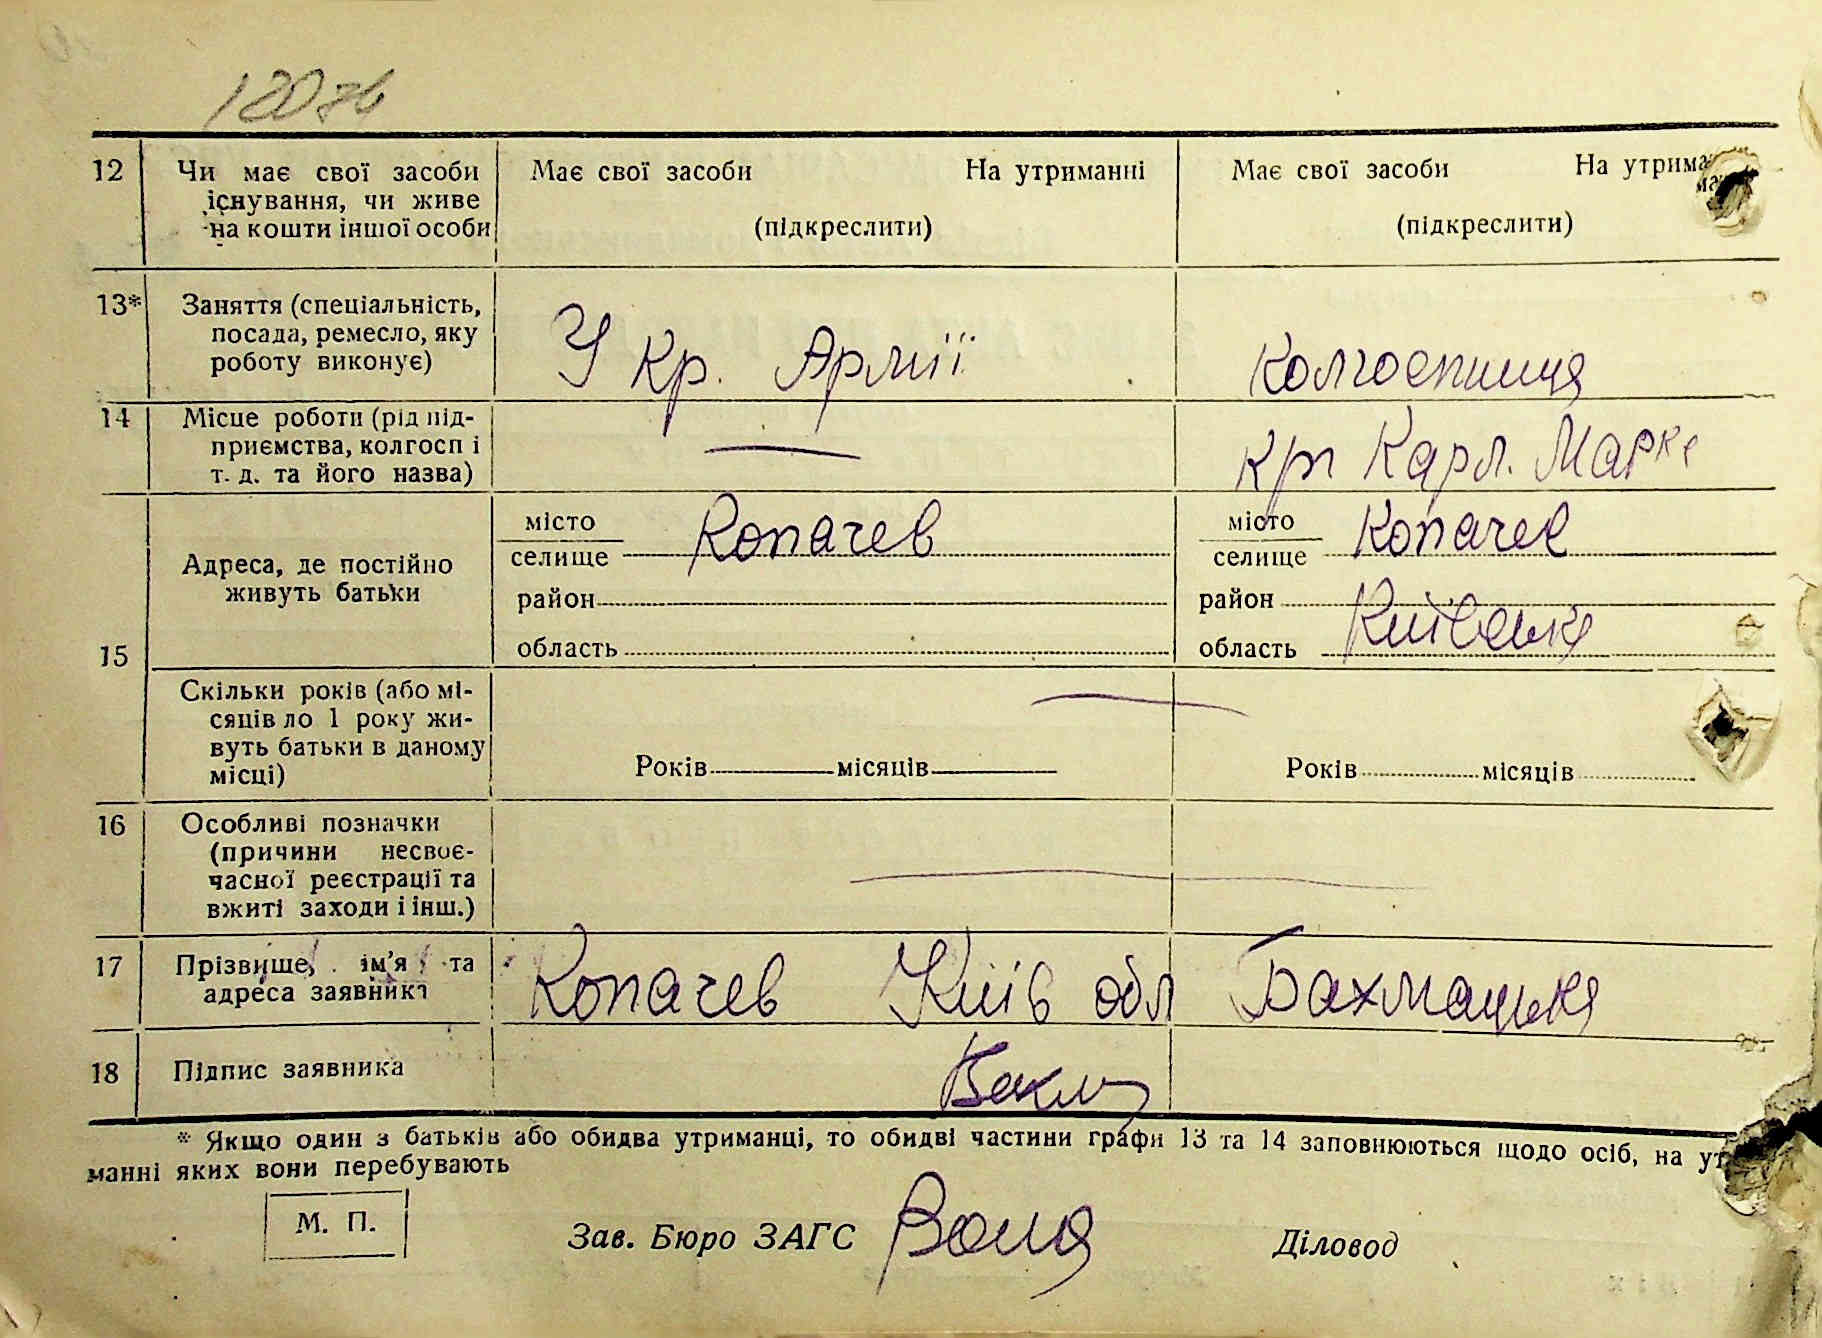 120 зв
12 Чи має свої засоби існування, чи живе на кошти іншої особи
Має свої засоби На утриманні
(підкреслити)
Має свої засоби На утрима
(підкреслити)
13* Заняття (спеціальність,
посада, ремесло, яку
роботу виконує)
У Кр. Армії
Колгоспниця
14 Місце роботи (рід під-
приємства, колгосп і
т. д. та його назва)
—
Карл. Маркс
15 Адреса, де постійно
живуть батьки
місто
селище Копачев
район
область
місто
селище Копачев
район
область Київська
Скільки років (або мі-
сяців до 1 року жи-
вуть батьки в даному
місці)
Років місяців
Років місяців
16 Особливі позначки
(причини несвоє-
часної реєстрації та
вжиті заходи і інш.)
17 Прізвище, ім'я та
адреса заявника
Копачев Київ обл Бахмацька
18 Підпис заявника
* Якщо один з батьків або обидва утриманці, то обидві частини графи 13 та 14 заповнюються щодо осіб, на ут
манні яких вони перебувають
М. П.
Зав. Бюро ЗАГС
Діловод